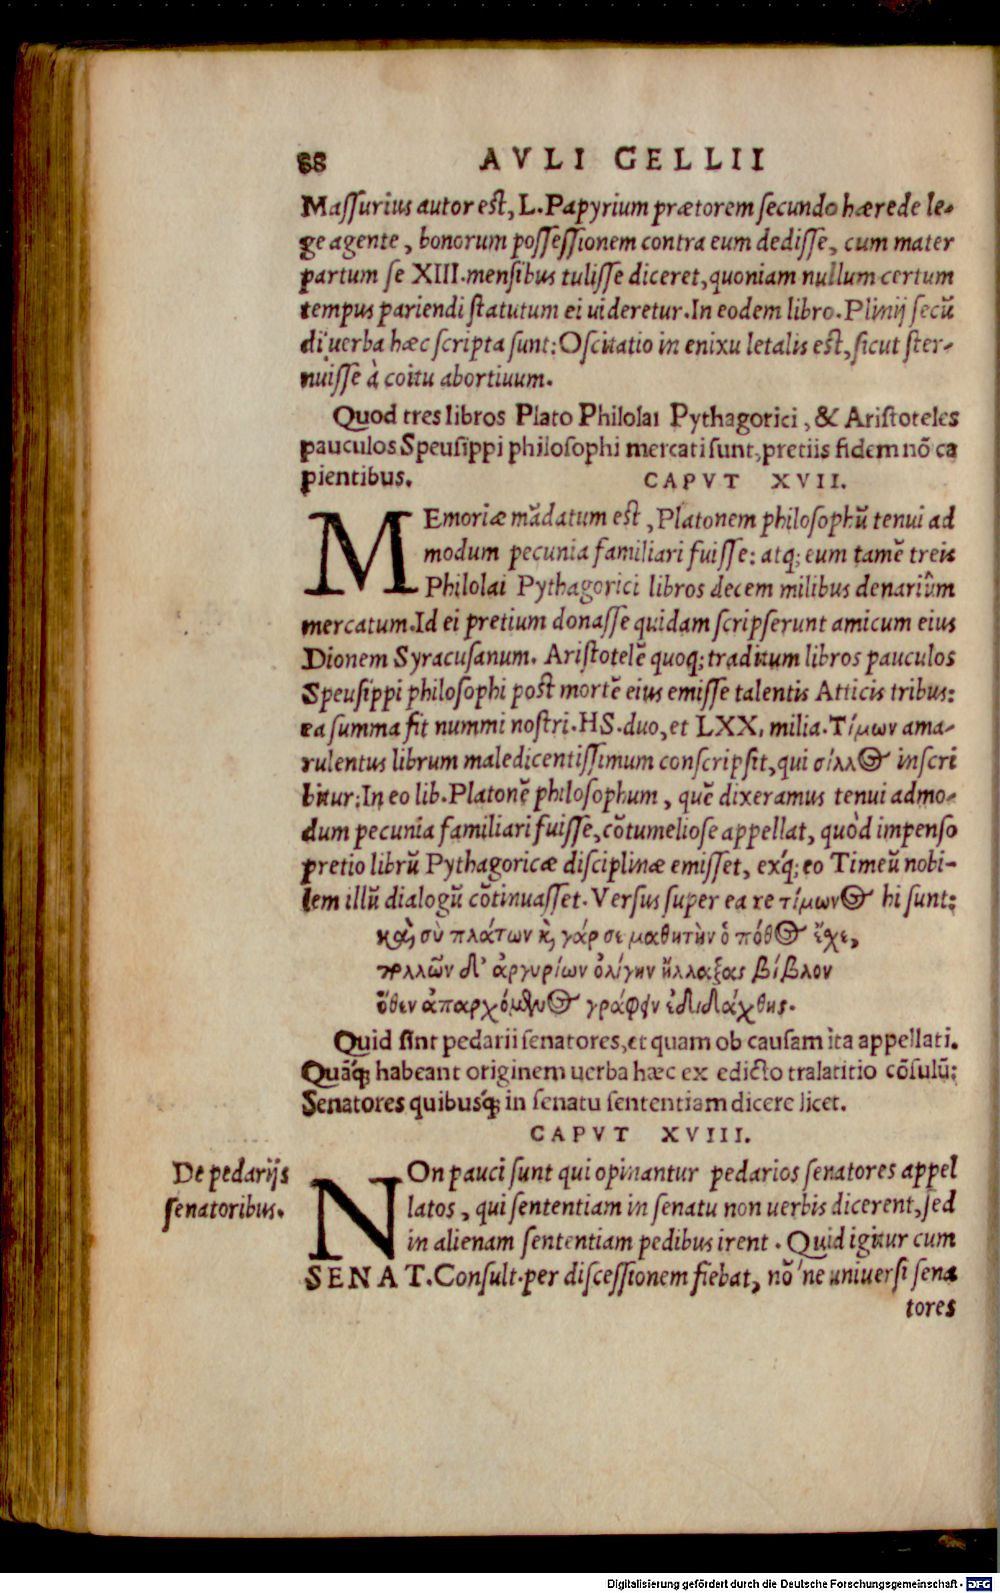 88 AVLI GELLII
Massurius autor est, L. Papyrium prætorem secundo hærede le-
ge agente, bonorum possessionem contra eum dedisse, cum mater
partum se XIII. mensibus tulisse diceret, quoniam nullum certum
tempus pariendi statutum ei uideretur. In eodem libro. Plinij secũ
di uerba hæc scripta sunt: Oscitatio in enixu letalis est, sicut ster-
nuisse à coitu abortiuum.
Quod tres libros Plato Philolai Pythagorici, & Aristoteles
pauculos Speusippi philosophi mercati sunt, pretiis fidem nõ ca
pientibus. CAPVT XVII.
MEmoriæ mãdatum est, Platonem philosophũ tenui ad
modum pecunia familiari fuisse: atq; eum tamẽ treis
Philolai Pythagorici libros decem milibus denariûm
mercatum. Id ei pretium donasse quidam scripserunt amicum eius
Dionem Syracusanum. Aristotelẽ quoq; traditum libros pauculos
Speusippi philosophi post mortẽ eius emisse talentis Atticis tribus:
ea summa fit nummi nostri. HS. duo, et LXX. milia. Τίμων ama-
rulentus librum maledicentissimum conscripsit, qui σίλλος inscri
bitur: In eo lib. Platonẽ philosophum, quẽ dixeramus tenui admo-
dum pecunia familiari fuisse, cõtumeliose appellat, quòd impenso
pretio librũ Pythagoricæ disciplinæ emisset, exq́; eo Timeũ nobi-
lem illũ dialogũ cõtinuasset. Versus super ea re τίμωνος hi sunt:
καὶ σὺ πλάτων καὶ γάρ σε μαθητὴν ὁ πόθος ἔχε,
πολλῶν δ' ἀργυρίων ὀλίγην ἤλλαξας βίβλον
ὅθεν ἀπαρχόμενος γράφειν ἐδιδάχθης.
Quid sint pedarii senatores, et quam ob causam ita appellati.
Quãq́; habeant originem uerba hæc ex edicto tralatitio cõsulũ:
Senatores quibusq́; in senatu sententiam dicere licet.
CAPVT XVIII.
De pedarijs
senatoribus.
NOn pauci sunt qui opinantur pedarios senatores appel
latos, qui sententiam in senatu non uerbis dicerent, sed
in alienam sententiam pedibus irent. Quid igitur cum
SENAT. Consult. per discessionem fiebat, nõ'ne uniuersi sena
tores
Digitalisierung gefördert durch die Deutsche Forschungsgemeinschaft - DFG